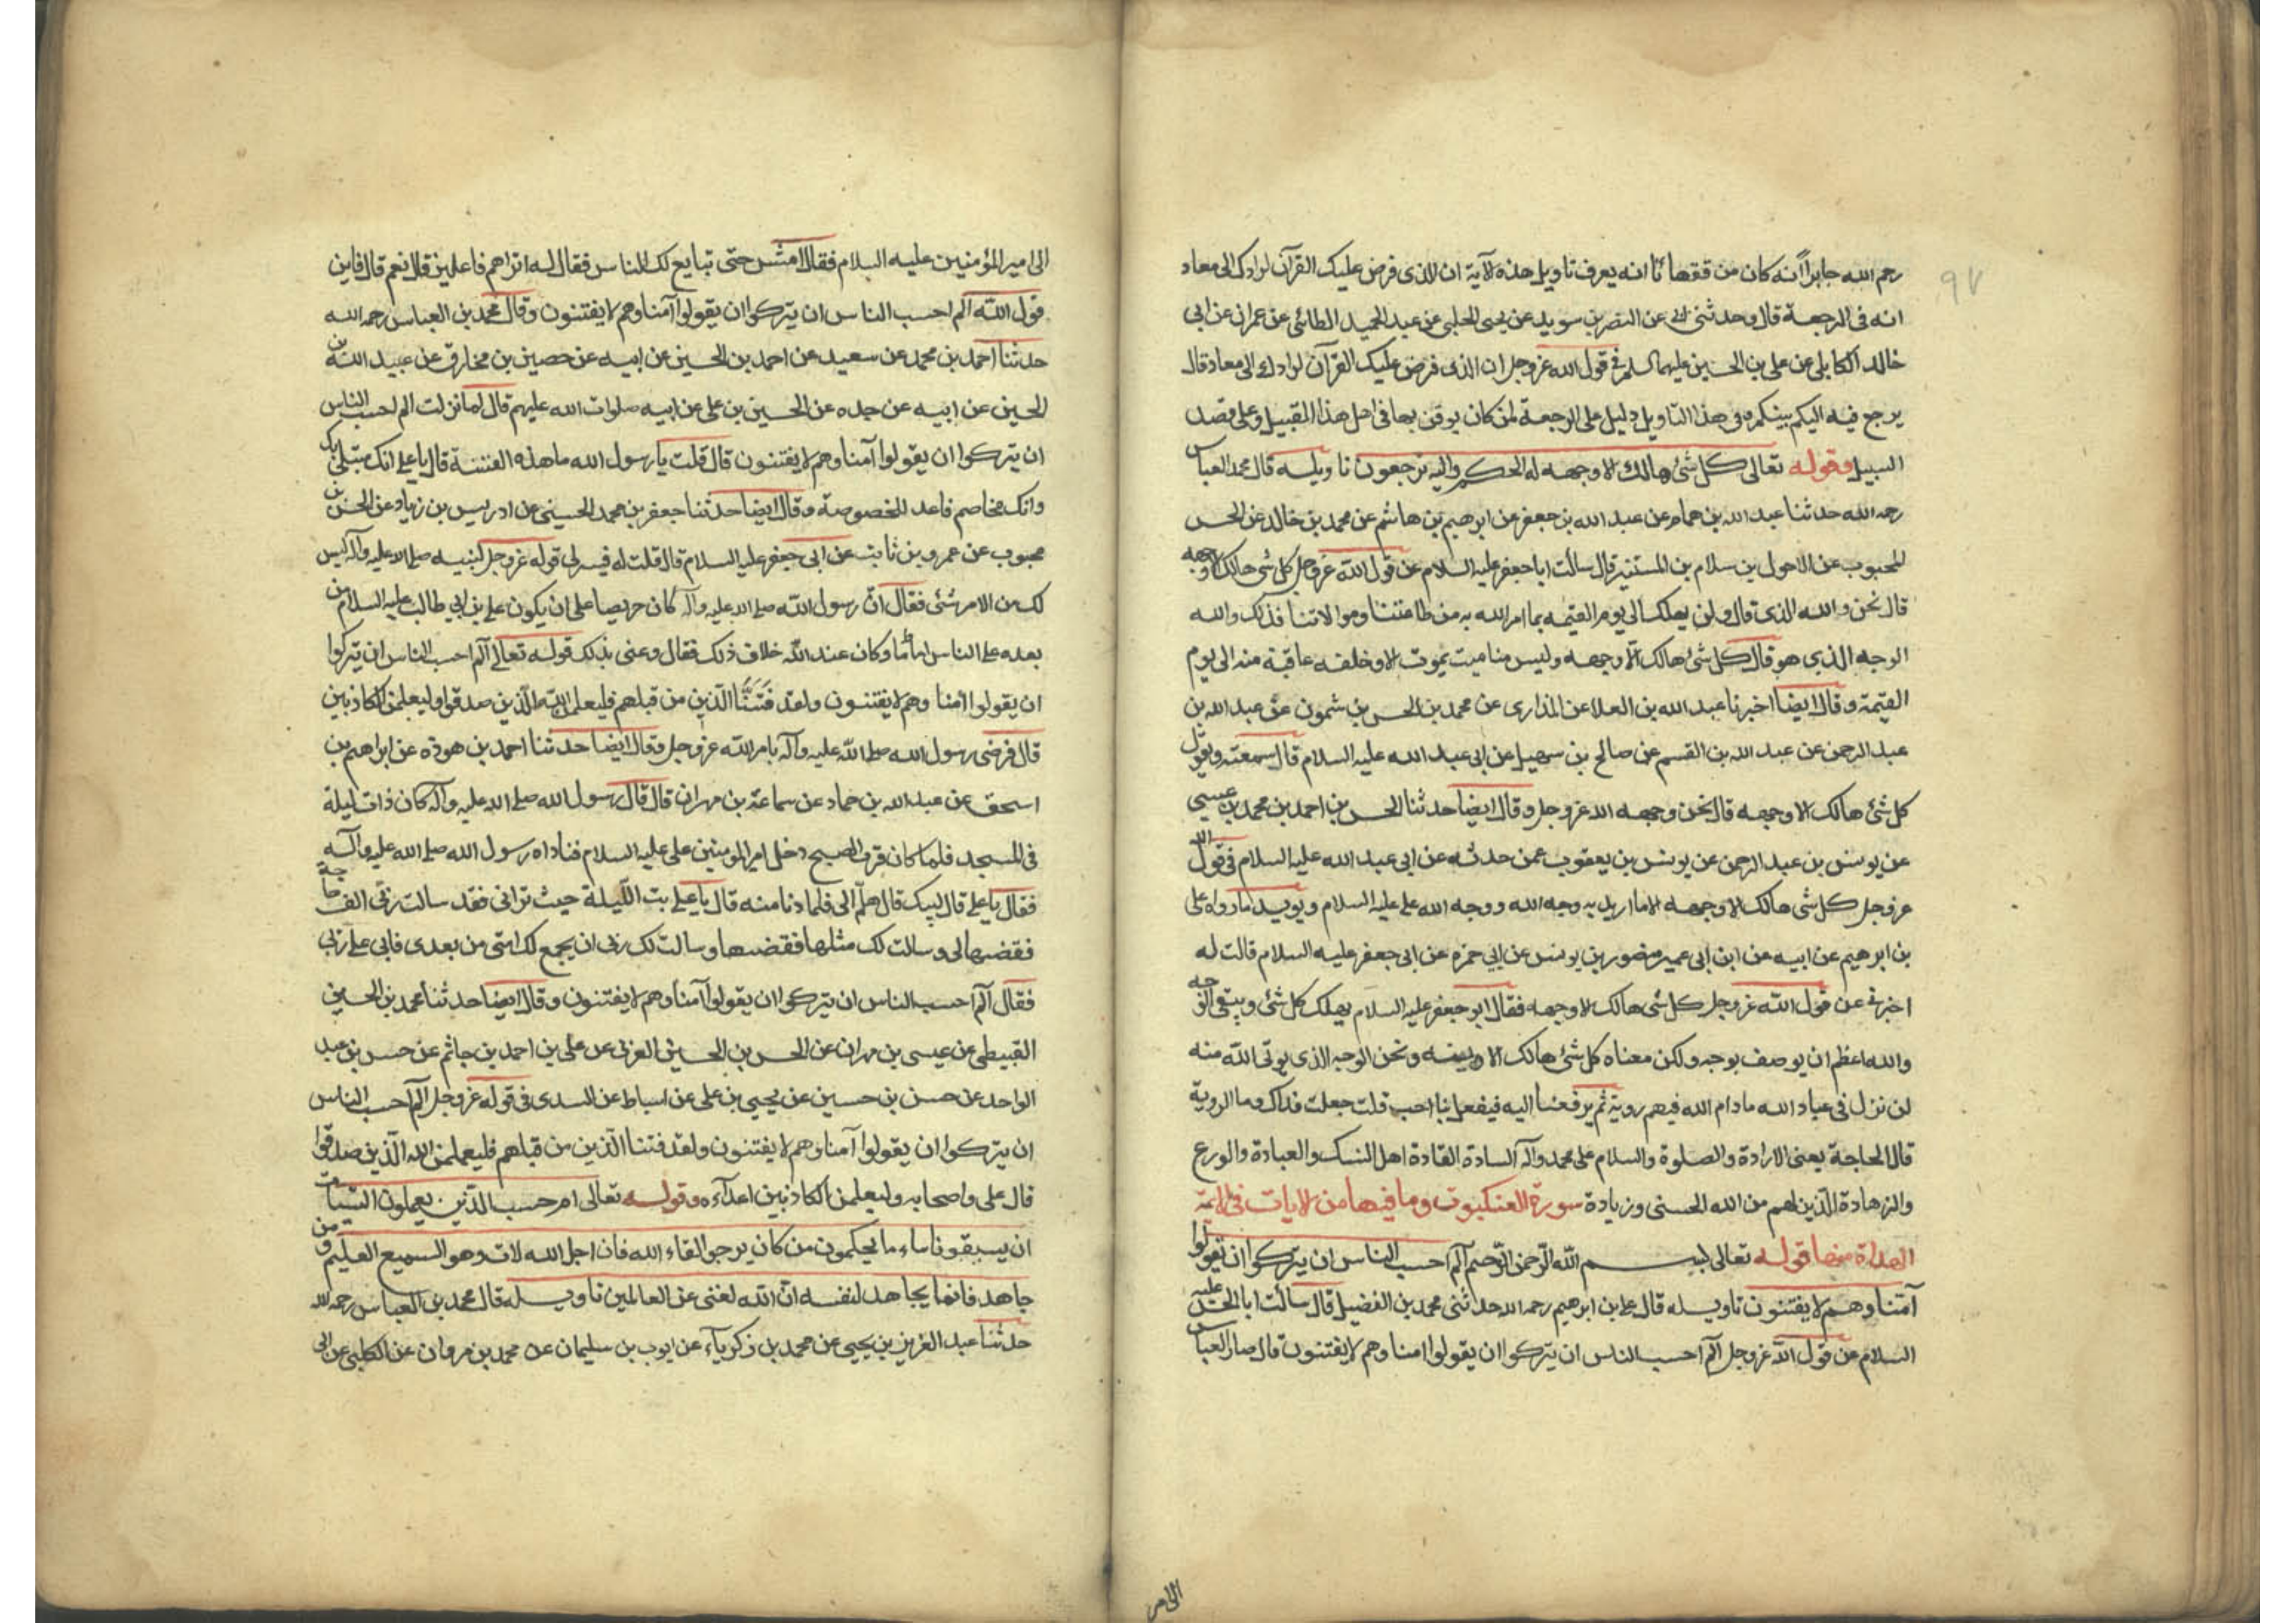 رحم الله جابرا انه كان من فقهائنا انه يعرف تاويل هذه الآية ان الذى فرض عليك القرآن لرادك الى معاد
انه فى الرجعة قال وحدثنى ابى عن النضر بن سويد عن يحيى الحلبى عن عبد الحميد الطائى عن عمران عن ابى
خالد الكابلى عن على بن الحسين عليهما السلم فى قول الله عز وجل ان الذى فرض عليك القرآن لرادك الى معاد قال
يرجع فيه اليكم بينكم وفى هذا التاويل دليل على الرجعة لمن كان يوقن بها فى اهل هذا القبيل وعلى قصد
السبيل وقوله تعالى كل شئ هالك الا وجهه له الحكم واليه ترجعون تاويله قال محمد العباس
رحمه الله حدثنا عبد الله بن همام عن عبد الله بن جعفر عن ابرهيم بن هاشم عن محمد بن خالد عن الحسن
المحبوب عن الاحول بن سلام بن المستنير قال سألت ابا جعفر عليه السلام عن قول الله عز وجل كل شئ هالك الا وجهه
قال نحن والله الذى قال ولن يهلك الى يوم القيمة بما امر الله به من طاعتنا وموالاتنا فذلك والله
الوجه الذي هو قال كل شئ هالك الا وجهه وليس منا ميت يموت الا وخلفه عاقبة منه الى يوم
القيمة وقال ايضا اخبرنا عبد الله بن العلا عن المذارى عن محمد بن الحسن بن شمون عن عبد الله بن
عبد الرحمن عن عبد الله بن القسم عن صالح بن سهيل عن ابى عبد الله عليه السلام قال سمعته ويقول
كل شئ هالك الا وجهه قال نحن وجهه الله عز وجل وقال ايضا حدثنا الحسن بن احمد بن محمد بن عيسى
عن يونس بن عبد الرحمن عن يونس بن يعقوب عمن حدثه عن ابى عبد الله عليه السلام فى قول الله
عز وجل كل شئ هالك الا وجهه الا ما اريد به وجه الله ووجه الله على عليه السلام ويؤيد ما رواه على
بن ابرهيم عن ابيه عن ابن ابى عمير ومنصور بن يونس عن ابي حمزه عن ابى جعفر عليه السلام قالت له
اخبرنى عن قول الله عز وجل كل شئ هالك الا وجهه فقال ابو جعفر عليه السلام يهلك كل شئ ويبقى الوجه
والله اعظم ان يوصف بوجه ولكن معناه كل شئ هالك الا دينه ونحن الوجه الذى يوتى الله منه
لن نزل فى عباد الله مادام الله فيهم روية ثم يرفعنا اليه فيفعل بنا احب قلت جعلت فداك وما الروية
قال الحاجة يعنى الارادة والصلوة والسلام على محمد وآله السادة القادة اهل النسك والعبادة والورع
والزهادة الذين لهم من الله الحسنى وزيادة سورة العنكبوت وما فيها من الايات فى الائمة
الهداة منها قوله تعالى بسم الله الرحمن الرحيم الم احسب الناس ان يتركوا ان يقولوا
آمنا وهم لا يفتنون تاويله قال على بن ابرهيم رحمه الله حدثنى محمد بن الفضيل قال سألت ابا الحسن عليه
السلام عن قول الله عز وجل الم احسب الناس ان يتركوا ان يقولوا امنا وهم لا يفتنون قال صار العباس
الى امير
الى امير المؤمنين عليه السلام فقال امش حتى تبايع لك الناس فقال له اتراهم فاعلين قال نعم قال فاين
قول الله الم احسب الناس ان يتركوا ان يقولوا آمنا وهم لا يفتنون وقال محمد بن العباس رحمه الله
حدثنا احمد بن محمد عن سعيد عن احمد بن الحسين عن ابيه عن حصين بن مخارق عن عبيد الله بن
الحسين عن ابيه عن جده عن الحسين بن على عن ابيه صلوات الله عليهم قال لما نزلت الم احسب الناس
ان يتركوا ان يقولوا آمنا وهم لا يفتنون قال قلت يا رسول الله ما هذه الفتنة قال يا على انك مبتلى بك
وانك مخاصم فاعد للخصومة وقال ايضا حدثنا جعفر بن محمد الحسينى عن ادريس بن زياد عن الحسن بن
محبوب عن عمرو بن ثابت عن ابى جعفر عليه السلام قال قلت له فسر لى قوله عز وجل لنبيه صلى الله عليه وآله ليس
لك من الامر شئ فقال ان رسول الله صلى الله عليه وآله كان حريصا على ان يكون على بن ابي طالب عليه السلام من
بعده على الناس اماما وكان عند الله خلاف ذلك فقال وعنى بذلك قوله تعالى الم احسب الناس ان يتركوا
ان يقولوا امنا وهم لا يفتنون ولقد فتنا الذين من قبلهم فليعلمن الله الذين صدقوا وليعلمن الكاذبين
قال فرضى رسول الله صلى الله عليه وآله بامر الله عز وجل وقال ايضا حدثنا احمد بن هوذه عن ابراهيم بن
اسحق عن عبد الله بن حماد عن سماعة بن مهران قال قال رسول الله صلى الله عليه وآله كان ذات ليلة
فى المسجد فلما كان قرب الصبح دخل امير المؤمنين على عليه السلام فناداه رسول الله صلى الله عليه وآله
فقال يا على قال لبيك قال هلم الى فلما دنا منه قال يا على بت الليلة حيث ترانى فقد سالت ربى الف حاجة
فقضيها لى وسالت لك مثلها فقضيها وسالت لك ربى ان يجمع لك امتى من بعدى فابى على ربى
فقال الم احسب الناس ان يتركوا ان يقولوا آمنا وهم لا يفتنون وقال ايضا حدثنا محمد بن الحسين
القبيطى عن عيسى بن مهران عن الحسن بن الحسين العرنى عن على بن احمد بن حاتم عن حسن بن عبد
الواحد عن حسن بن حسين عن يحيى بن على عن اسباط عن السدى فى قوله عز وجل الم احسب الناس
ان يتركوا ان يقولوا آمنا وهم لا يفتنون ولقد فتنا الذين من قبلهم فليعلمن الله الذين صدقوا
قال على واصحابه وليعلمن الكاذبين اعدآءه وقوله تعالى ام حسب الذين يعملون السيئات
ان يسبقونا ساء ما يحكمون من كان يرجوا لقاء الله فان اجل الله لات وهو السميع العليم ومن
جاهد فانما يجاهد لنفسه ان الله لغنى عن العالمين تاويله قال محمد بن العباس رحمه الله
حدثنا عبد العزيز بن يحيى عن محمد بن زكرياء عن ايوب بن سليمان عن محمد بن مروان عن الكلبى عن ابى